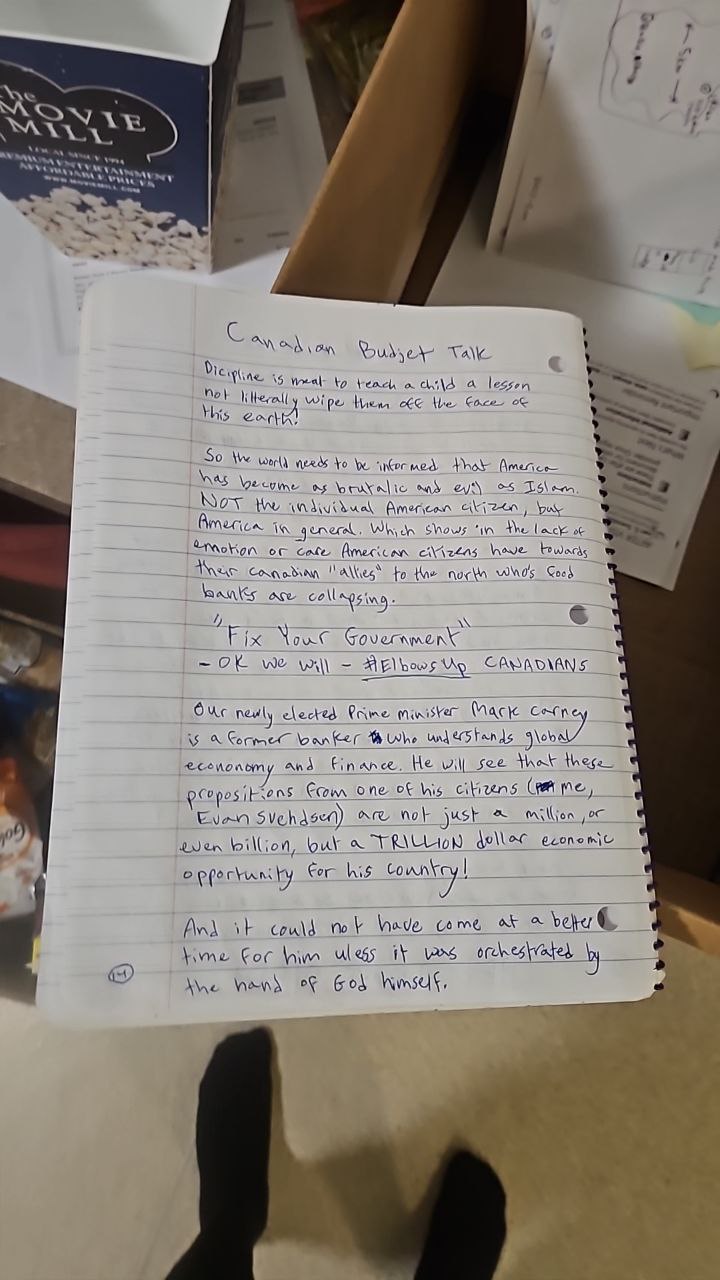 the
MOVIE
MILL
LOCAL SINCE 1994
PREMIUM ENTERTAINMENT
AFFORDABLE PRICES
WWW.MOVIEMILL.COM
Canadian Budjet Talk
Dicipline is meat to teach a child a lesson
not litterally wipe them off the face of
this earth!
So the world needs to be informed that America
has become as brutalic and evil as Islam.
NOT the individual American citizen, but
America in general. Which shows in the lack of
emotion or care American citizens have towards
their canadian "allies" to the north who's food
banks are collapsing.
"Fix Your Government"
- OK we will - #Elbows Up CANADIANS
Our newly elected Prime minister Mark Carney
is a former banker who understands global
econonomy and finance. He will see that these
propositions from one of his citizens (me,
Evan Svehdsen) are not just a million, or
even billion, but a TRILLION dollar economic
opportunity for his country!
And it could not have come at a better
time for him uless it was orchestrated by
the hand of God himself.